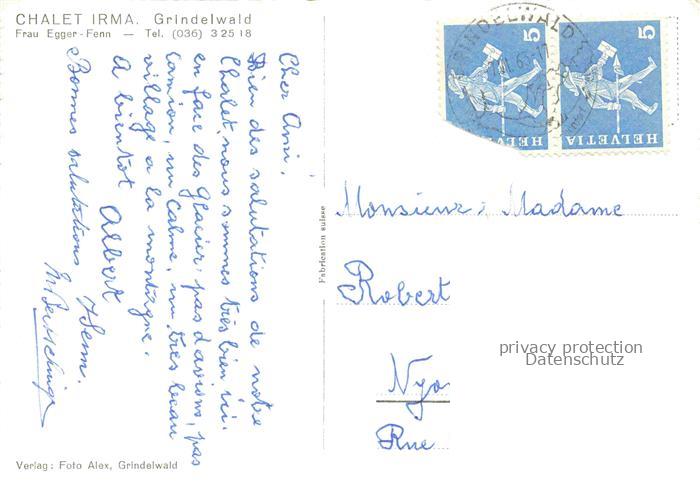 CHALET IRMA. Grindelwald
Frau Egger-Fenn — Tel. (036) 3 25 18
Cher Ami,
Bien des salutations de notre
Chalet, nous sommes très bien ici.
en face des glacier, pas d'avions, pas
camion, un calme, un très beau
village a la montagne.
A bientôt Albert
Bonnes salutations
Verlag: Foto Alex, Grindelwald
Fabrication suisse
GRINDELWALD
5
HELVETIA
5
HELVETIA
Monsieur, Madame
Robert
Nyo
Rue
privacy protection
Datenschutz